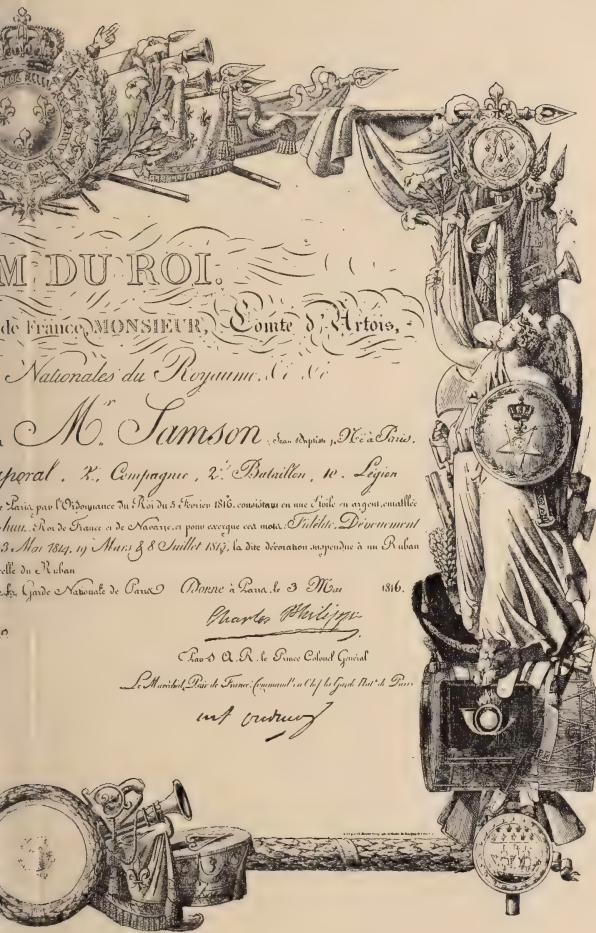 M DU ROI.
de France, MONSIEUR, Comte d'Artois,
Nationales du Royaume, &c &c
Mr. Samson, Jean Baptiste, Né à Paris.
poral, Compagnie, 2e Bataillon, 10e Légion
Paris, par l'Ordonnance du Roi du 5 Février 1816, consistant en une Etoile en argent, emaillée
Roi de France et de Navarre, et pour exergue ces mots: Fidélité, Dévouement
3 Mai 1814, 19 Mars & 8 Juillet 1815, la dite décoration suspendue à un Ruban
celle du Ruban
Garde Nationale de Paris Donné à Paris, le 3 Mai 1816.
Charles Philippe
Par S A. R. le Prince Colonel Général
Le Maréchal, Pair de France, Command' en Chef la Garde Natle de Paris